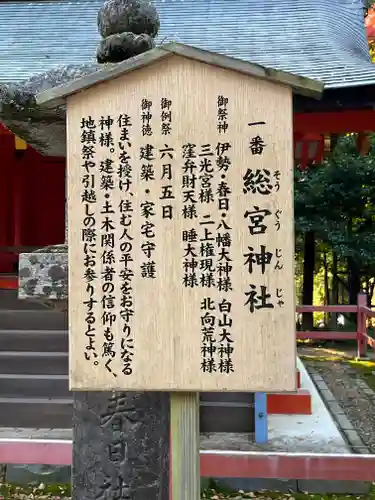 一番 総宮神社
そう ぐう じん じゃ
御祭神
伊勢・春日・八幡大神様 白山大神様
三光宮様 二上権現様 北向荒神様
窪弁財天様 睡大神様
御例祭 六月五日
御神徳 建築・家宅守護
住まいを授け、住む人の平安をお守りになる
神様。建築・土木関係者の信仰も篤く、
地鎮祭や引越しの際にお参りするとよい。
春日社